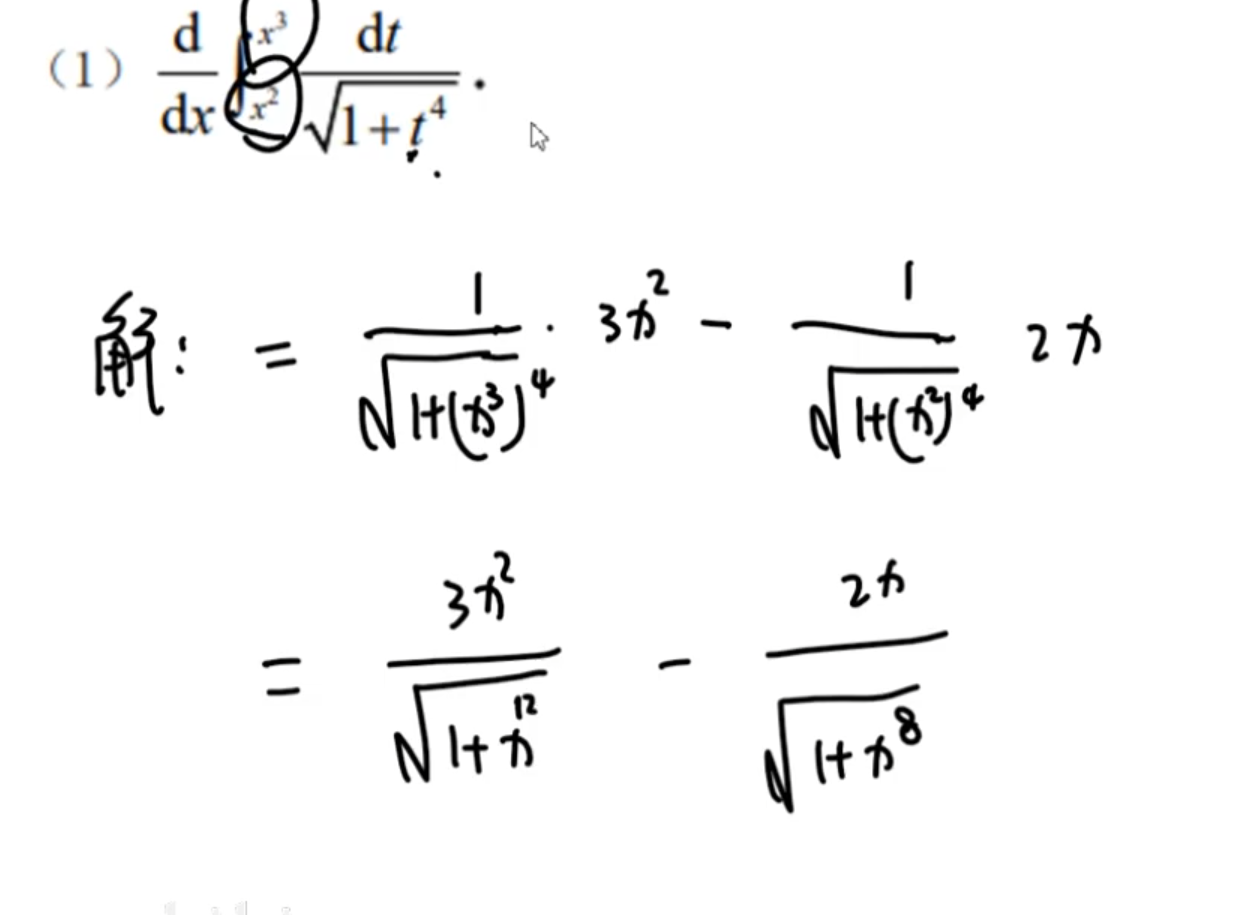 （1） d/dx ∫_{x²}^{x³} dt/√(1+t⁴) .
解: = 1/√(1+(x³)⁴) · 3x² − 1/√(1+(x²)⁴) 2x
= 3x²/√(1+x¹²) − 2x/√(1+x⁸)